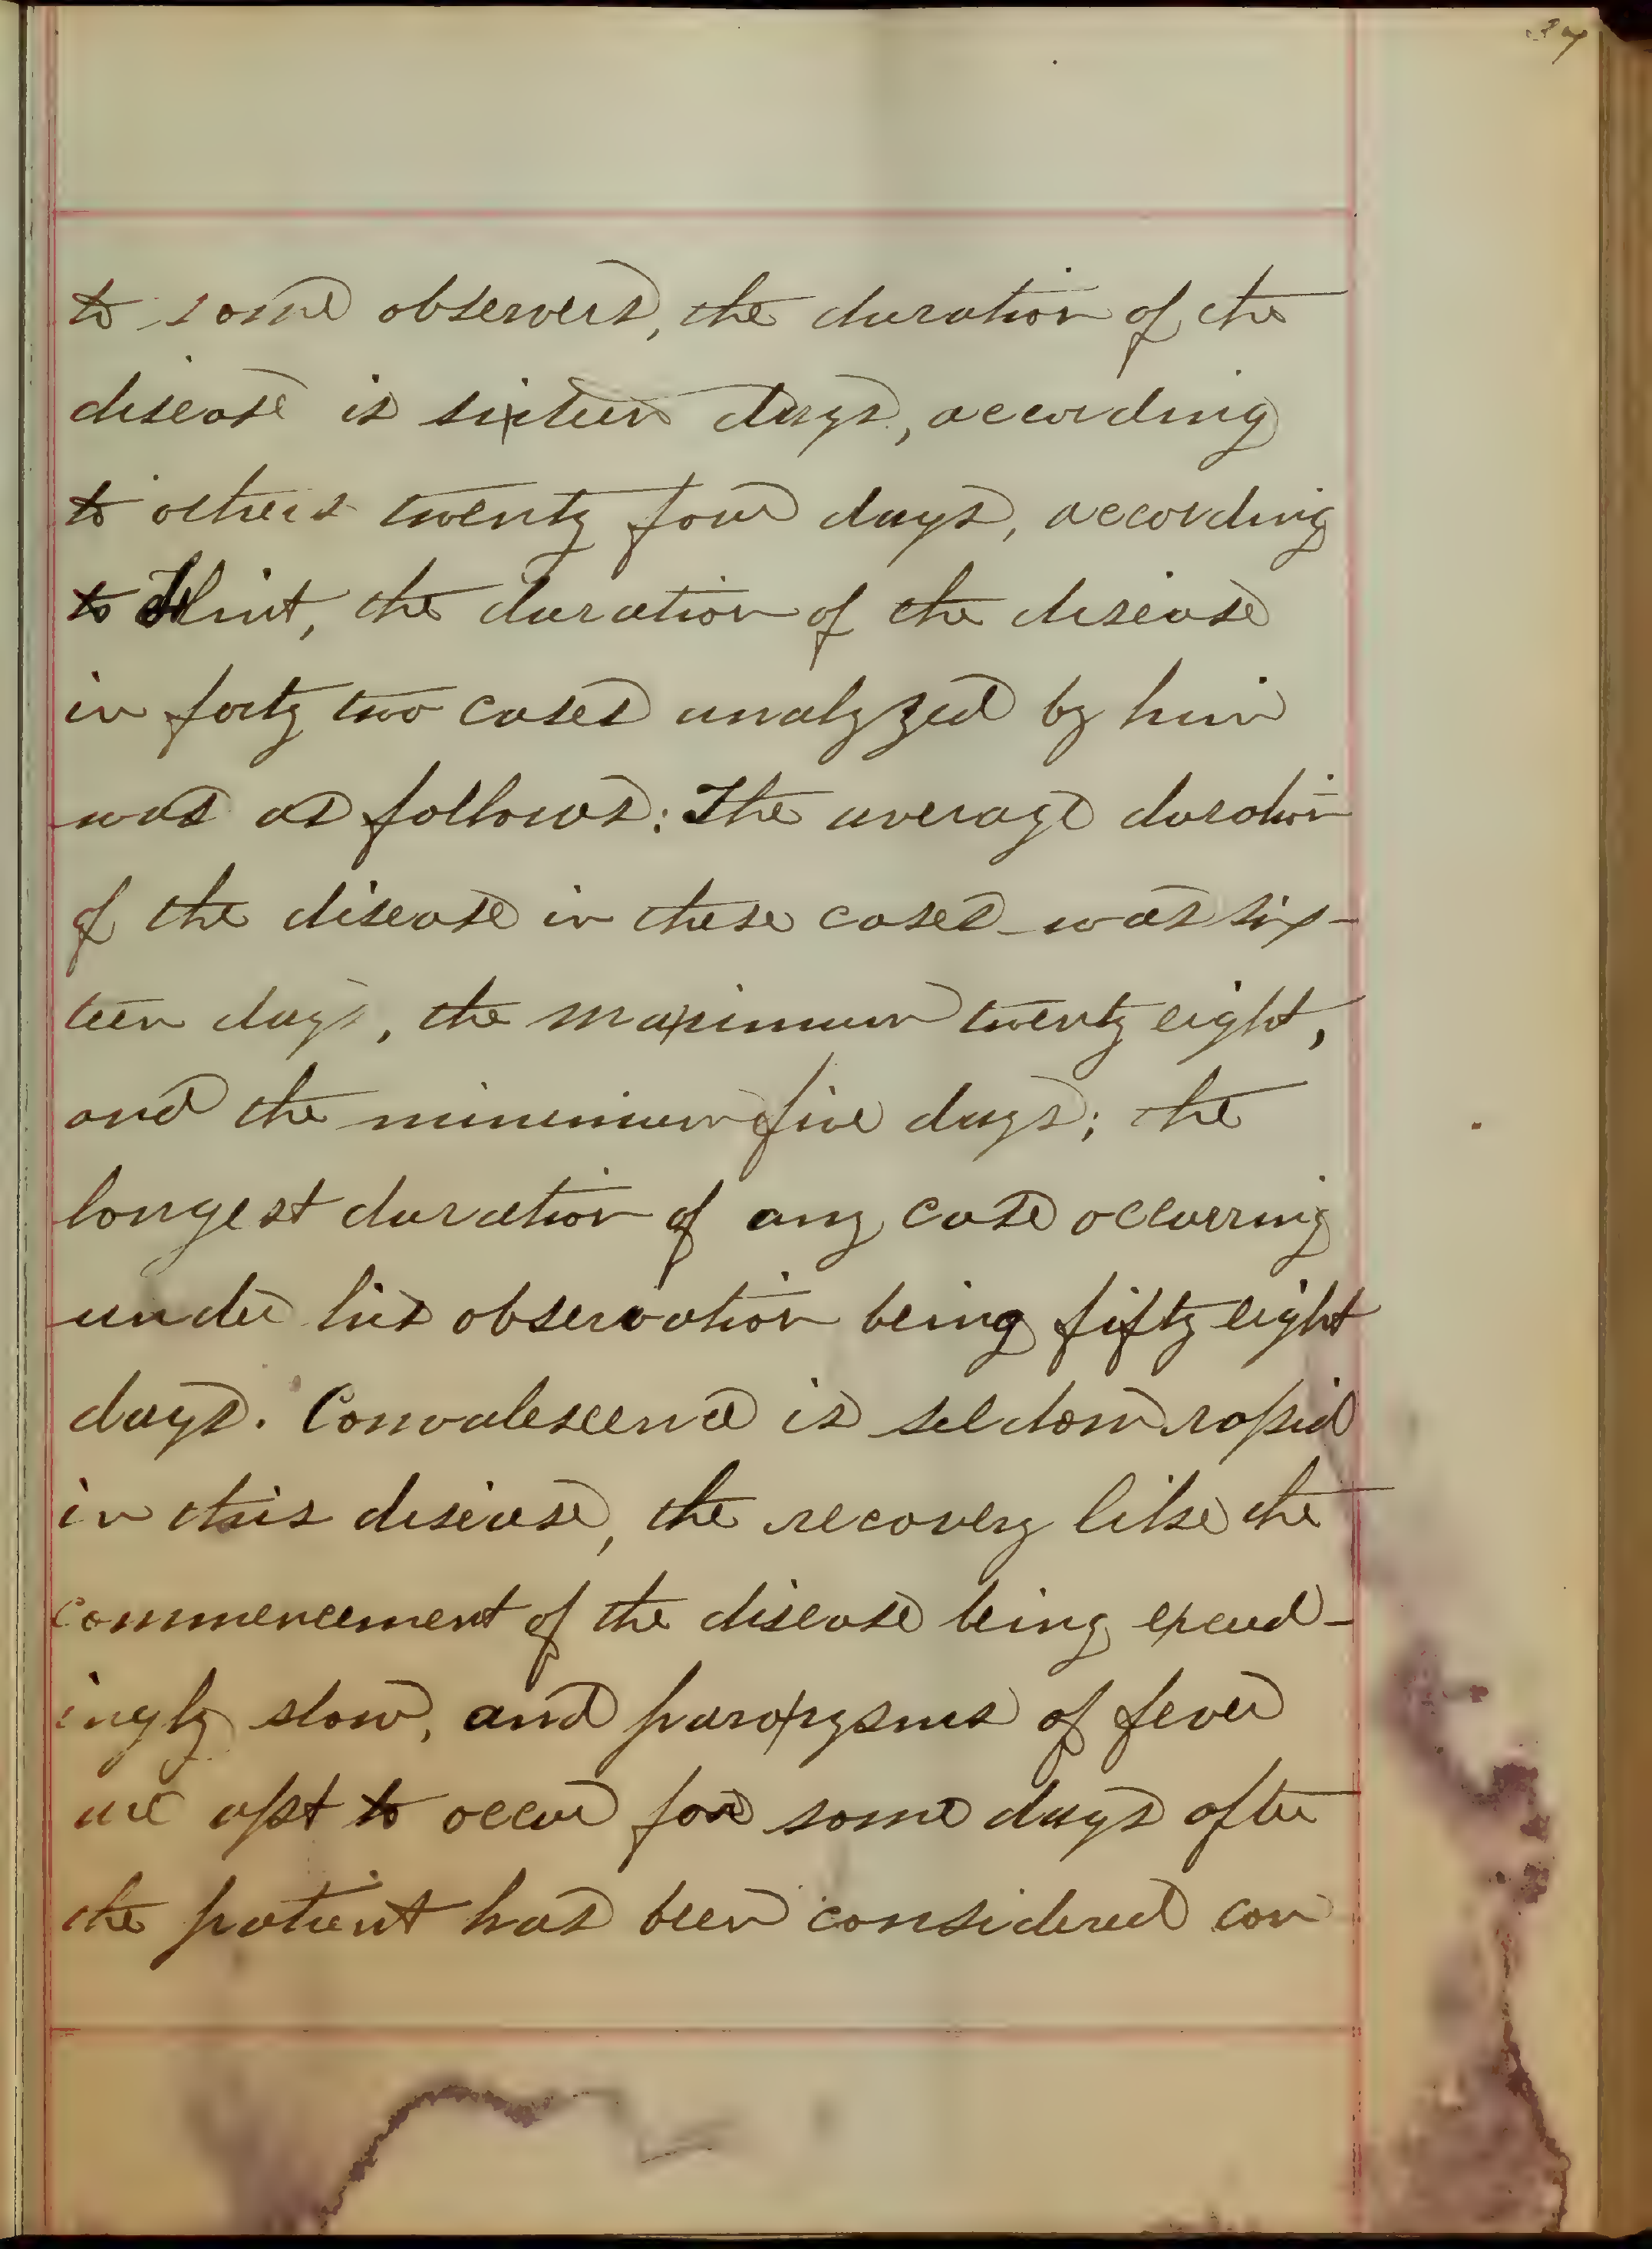 to some observers, the duration of the
disease is sixteen days, according
to others twenty four days, according
to Flint, the duration of the disease
in forty two cases analyzed by him
was as follows: The average duration
of the disease in these cases was six-
teen days, the maximum twenty eight,
and the minimum five days; the
longest duration of any case occurring
under his observation being fifty eight
days. Convalescence is seldom rapid
in this disease, the recovery like the
commencement of the disease being exceed-
ingly slow, and paroxysms of fever
are apt to occur for some days after
the patient has been considered con